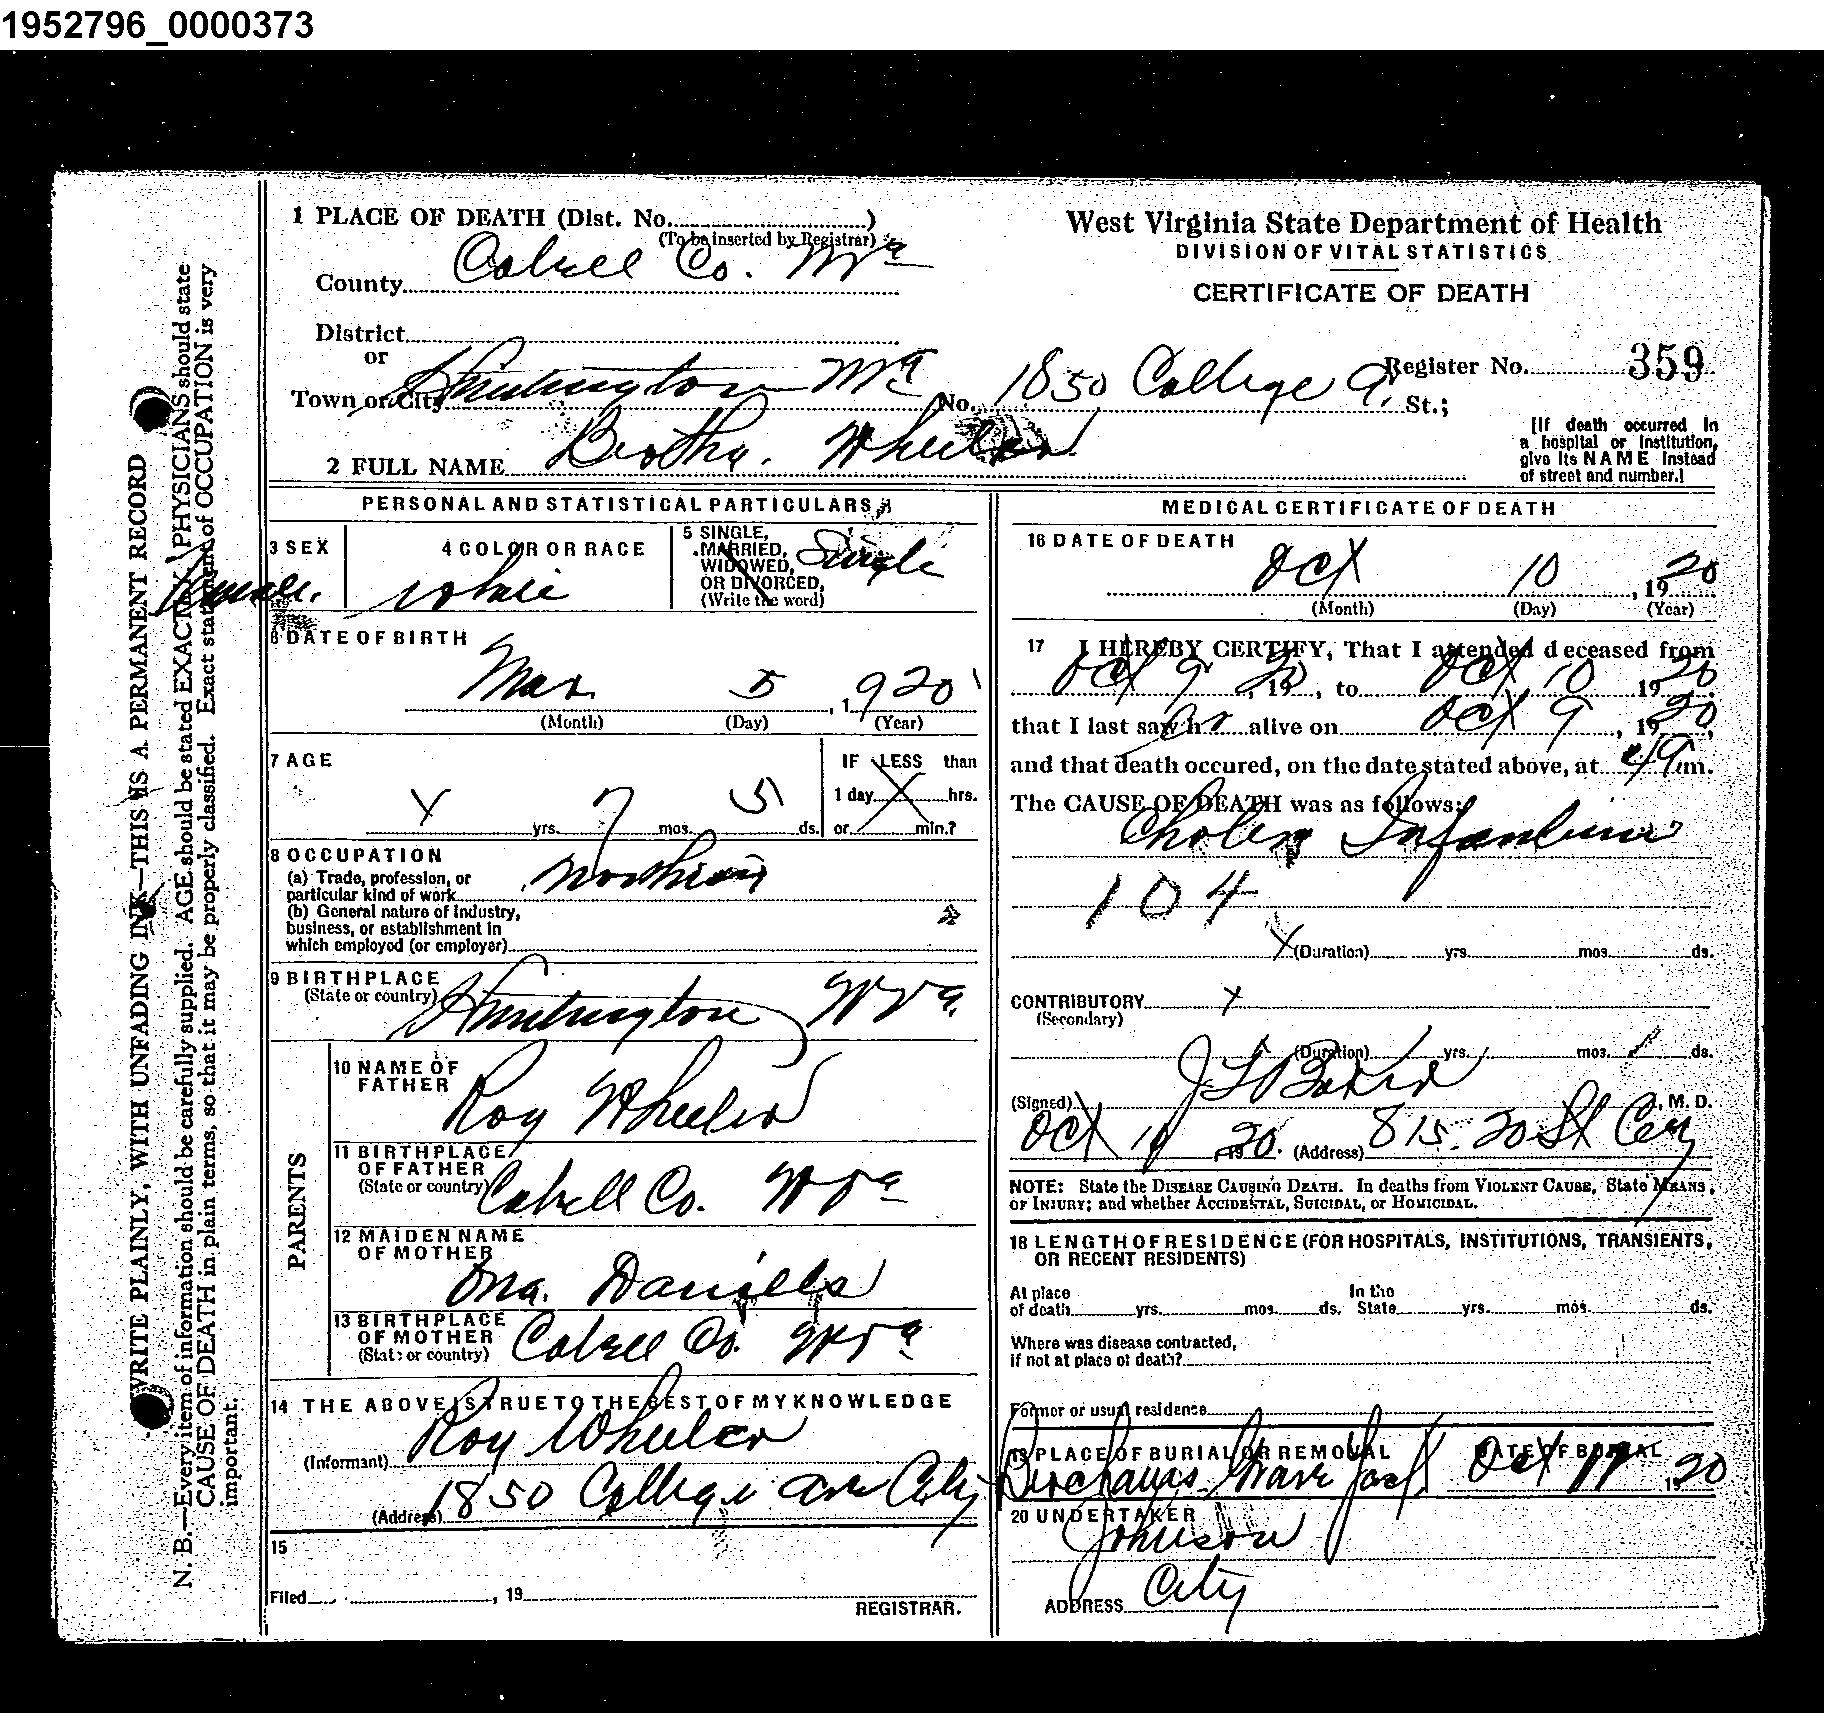 1952796_0000373
1 PLACE OF DEATH (Dist. No. )
(To be inserted by Registrar)
County Cabell Co. W Va
District
or
Town or City Huntington W Va No. 1850 College A. St.;
2 FULL NAME Bertha. Wheeler
West Virginia State Department of Health
DIVISION OF VITAL STATISTICS
CERTIFICATE OF DEATH
Register No. 359
[If death occurred in
a hospital or institution,
give its NAME instead
of street and number.]
PERSONAL AND STATISTICAL PARTICULARS
3 SEX
Female.
4 COLOR OR RACE
White
5 SINGLE,
MARRIED,
WIDOWED,
OR DIVORCED,
(Write the word)
Single
6 DATE OF BIRTH
Mar 5, 1920
(Month) (Day) (Year)
7 AGE
X yrs. 7 mos. 5 ds.
IF LESS than
1 day X hrs.
or min.?
8 OCCUPATION
(a) Trade, profession, or
particular kind of work
(b) General nature of industry,
business, or establishment in
which employed (or employer)
9 BIRTHPLACE
(State or country) Huntington W Va
PARENTS
10 NAME OF
FATHER
Roy Wheeler
11 BIRTHPLACE
OF FATHER
(State or country) Cabell Co. W Va
12 MAIDEN NAME
OF MOTHER
Ona. Daniels
13 BIRTHPLACE
OF MOTHER
(State or country) Cabell Co. W Va
14 THE ABOVE IS TRUE TO THE BEST OF MY KNOWLEDGE
(Informant) Roy Wheeler
(Address) 1850 College Ave City
15
Filed , 19
REGISTRAR.
MEDICAL CERTIFICATE OF DEATH
16 DATE OF DEATH
Oct 10, 1920
(Month) (Day) (Year)
17 I HEREBY CERTIFY, That I attended deceased from
Oct 9, 1920, to Oct 10 1920
that I last saw her alive on Oct 9, 1920,
and that death occured, on the date stated above, at m.
The CAUSE OF DEATH was as follows:
Cholera Infantum
104
X (Duration) yrs. mos. ds.
CONTRIBUTORY X
(Secondary)
(Duration) yrs. mos. ds.
(Signed) M. D.
Oct 1920. (Address) 815. 20 St City
NOTE: State the DISEASE CAUSING DEATH. In deaths from VIOLENT CAUSE, State MEANS,
OF INJURY; and whether ACCIDENTAL, SUICIDAL, or HOMICIDAL.
18 LENGTH OF RESIDENCE (FOR HOSPITALS, INSTITUTIONS, TRANSIENTS,
OR RECENT RESIDENTS)
At place
of death yrs. mos. ds.
In the
State yrs. mos. ds.
Where was disease contracted,
if not at place of death?
Former or usual residence
19 PLACE OF BURIAL OR REMOVAL
DATE OF BURIAL
Oct 1920
20 UNDERTAKER
Johnson
ADDRESS City
WRITE PLAINLY, WITH UNFADING INK—THIS IS A PERMANENT RECORD
N. B.—Every item of information should be carefully supplied. AGE should be stated EXACTLY. PHYSICIANS should state
CAUSE OF DEATH in plain terms, so that it may be properly classified. Exact statement of OCCUPATION is very
important.